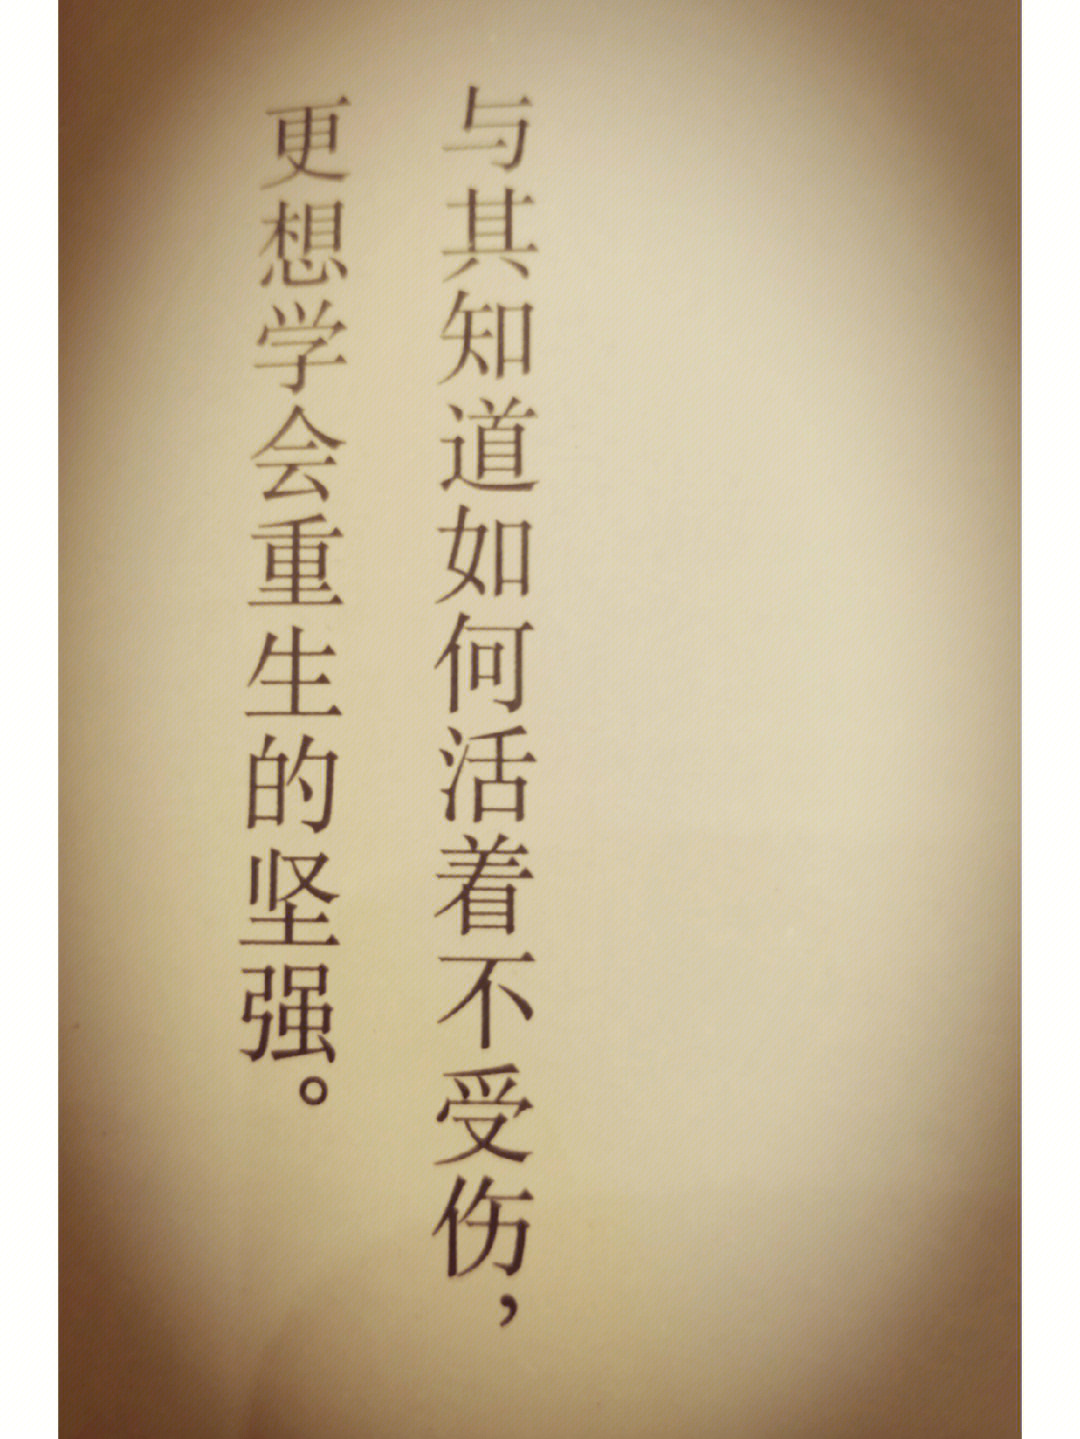 与其知道如何活着不受伤，
更想学会重生的坚强。